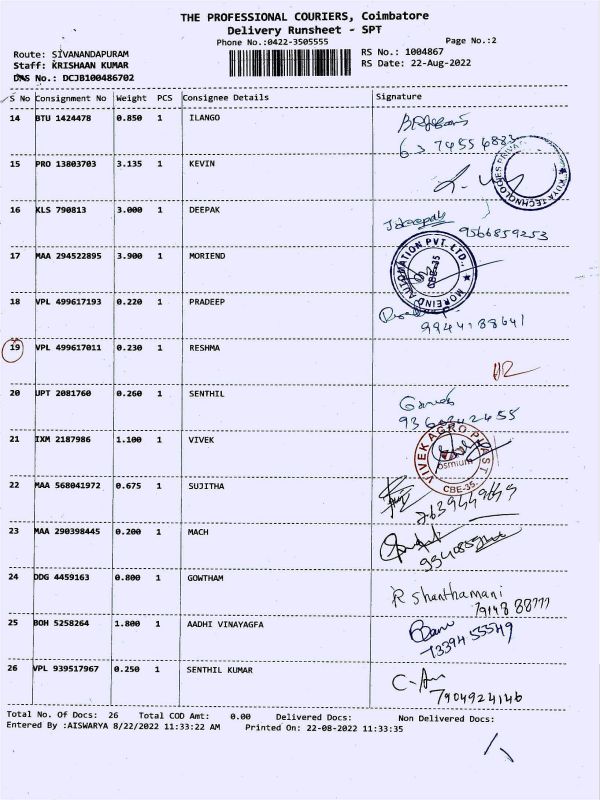 THE PROFESSIONAL COURIERS, Coimbatore
Delivery Runsheet - SPT
Phone No.:0422-3505555 Page No.:2
Route: SIVANANDAPURAM RS No.: 1004867
Staff: KRISHAAN KUMAR RS Date: 22-Aug-2022
DRS No.: DCJB100486702
S No Consignment No Weight PCS Consignee Details Signature
14 BTU 1424478 0.850 1 ILANGO
15 PRO 13803703 3.135 1 KEVIN
16 KLS 790813 3.000 1 DEEPAK
9566859253
17 MAA 294522895 3.900 1 MORIEND
MOREIND AUTOMATION PVT. LTD.
CBE-35
18 VPL 499617193 0.220 1 PRADEEP
19 VPL 499617011 0.230 1 RESHMA
20 UPT 2081760 0.260 1 SENTHIL
21 IXM 2187986 1.100 1 VIVEK
VIVEK AGRO PLAST
osmium
CBE-35.
22 MAA 568041972 0.675 1 SUJITHA
23 MAA 290398445 0.200 1 MACH
24 DDG 4459163 0.800 1 GOWTHAM
R Shanthamani
25 BOH 5258264 1.800 1 AADHI VINAYAGFA
26 VPL 939517967 0.250 1 SENTHIL KUMAR
7904924146
Total No. Of Docs: 26 Total COD Amt: 0.00 Delivered Docs: Non Delivered Docs:
Entered By :AISWARYA 8/22/2022 11:33:22 AM Printed On: 22-08-2022 11:33:35